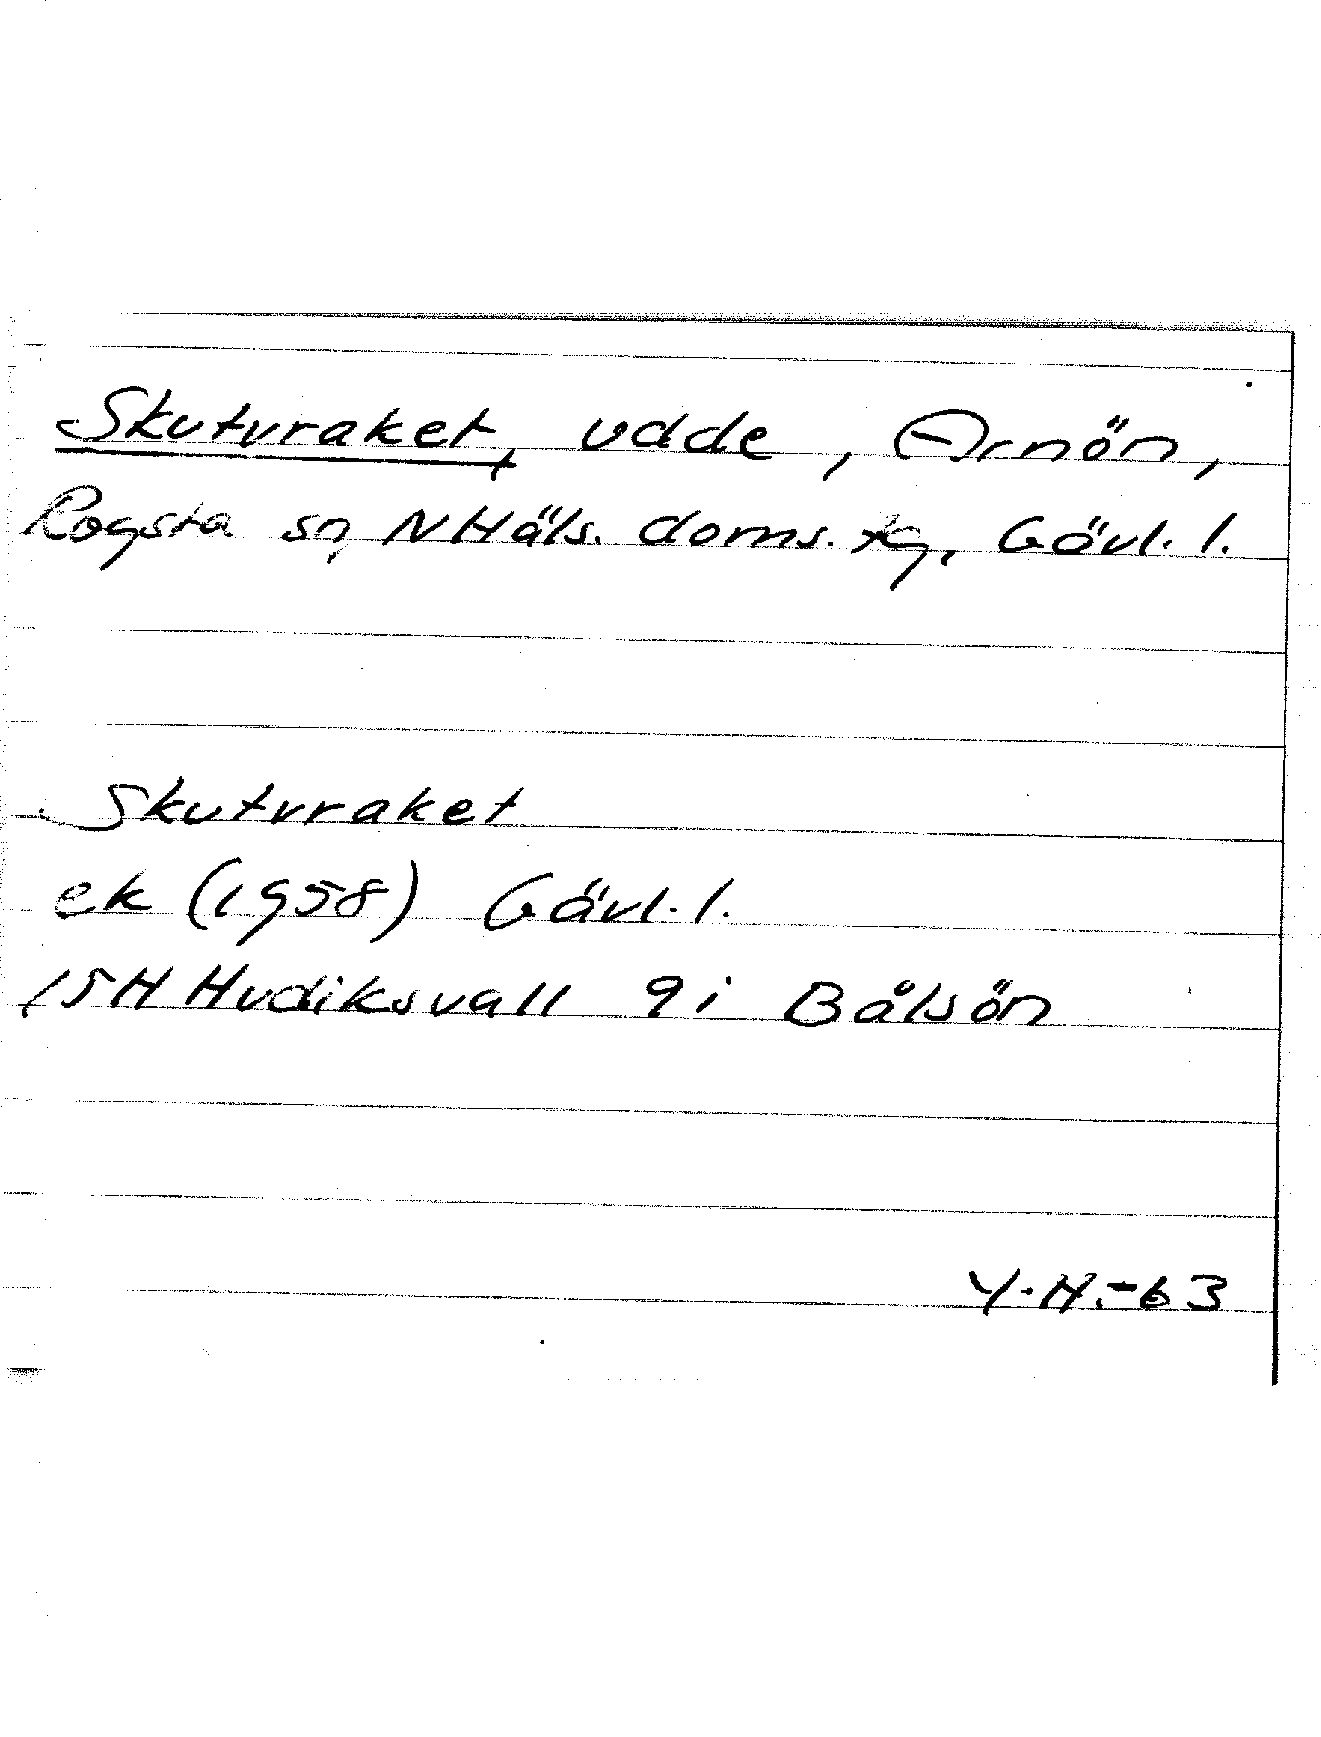 Skutvraket, udde, Arnön,
Rogsta sn, NHäls. doms. tg, Gävl. l.
Skutvraket
ek (1958) Gävl. l.
15H Hudiksvall 9i Bålsön
Y.H.-63